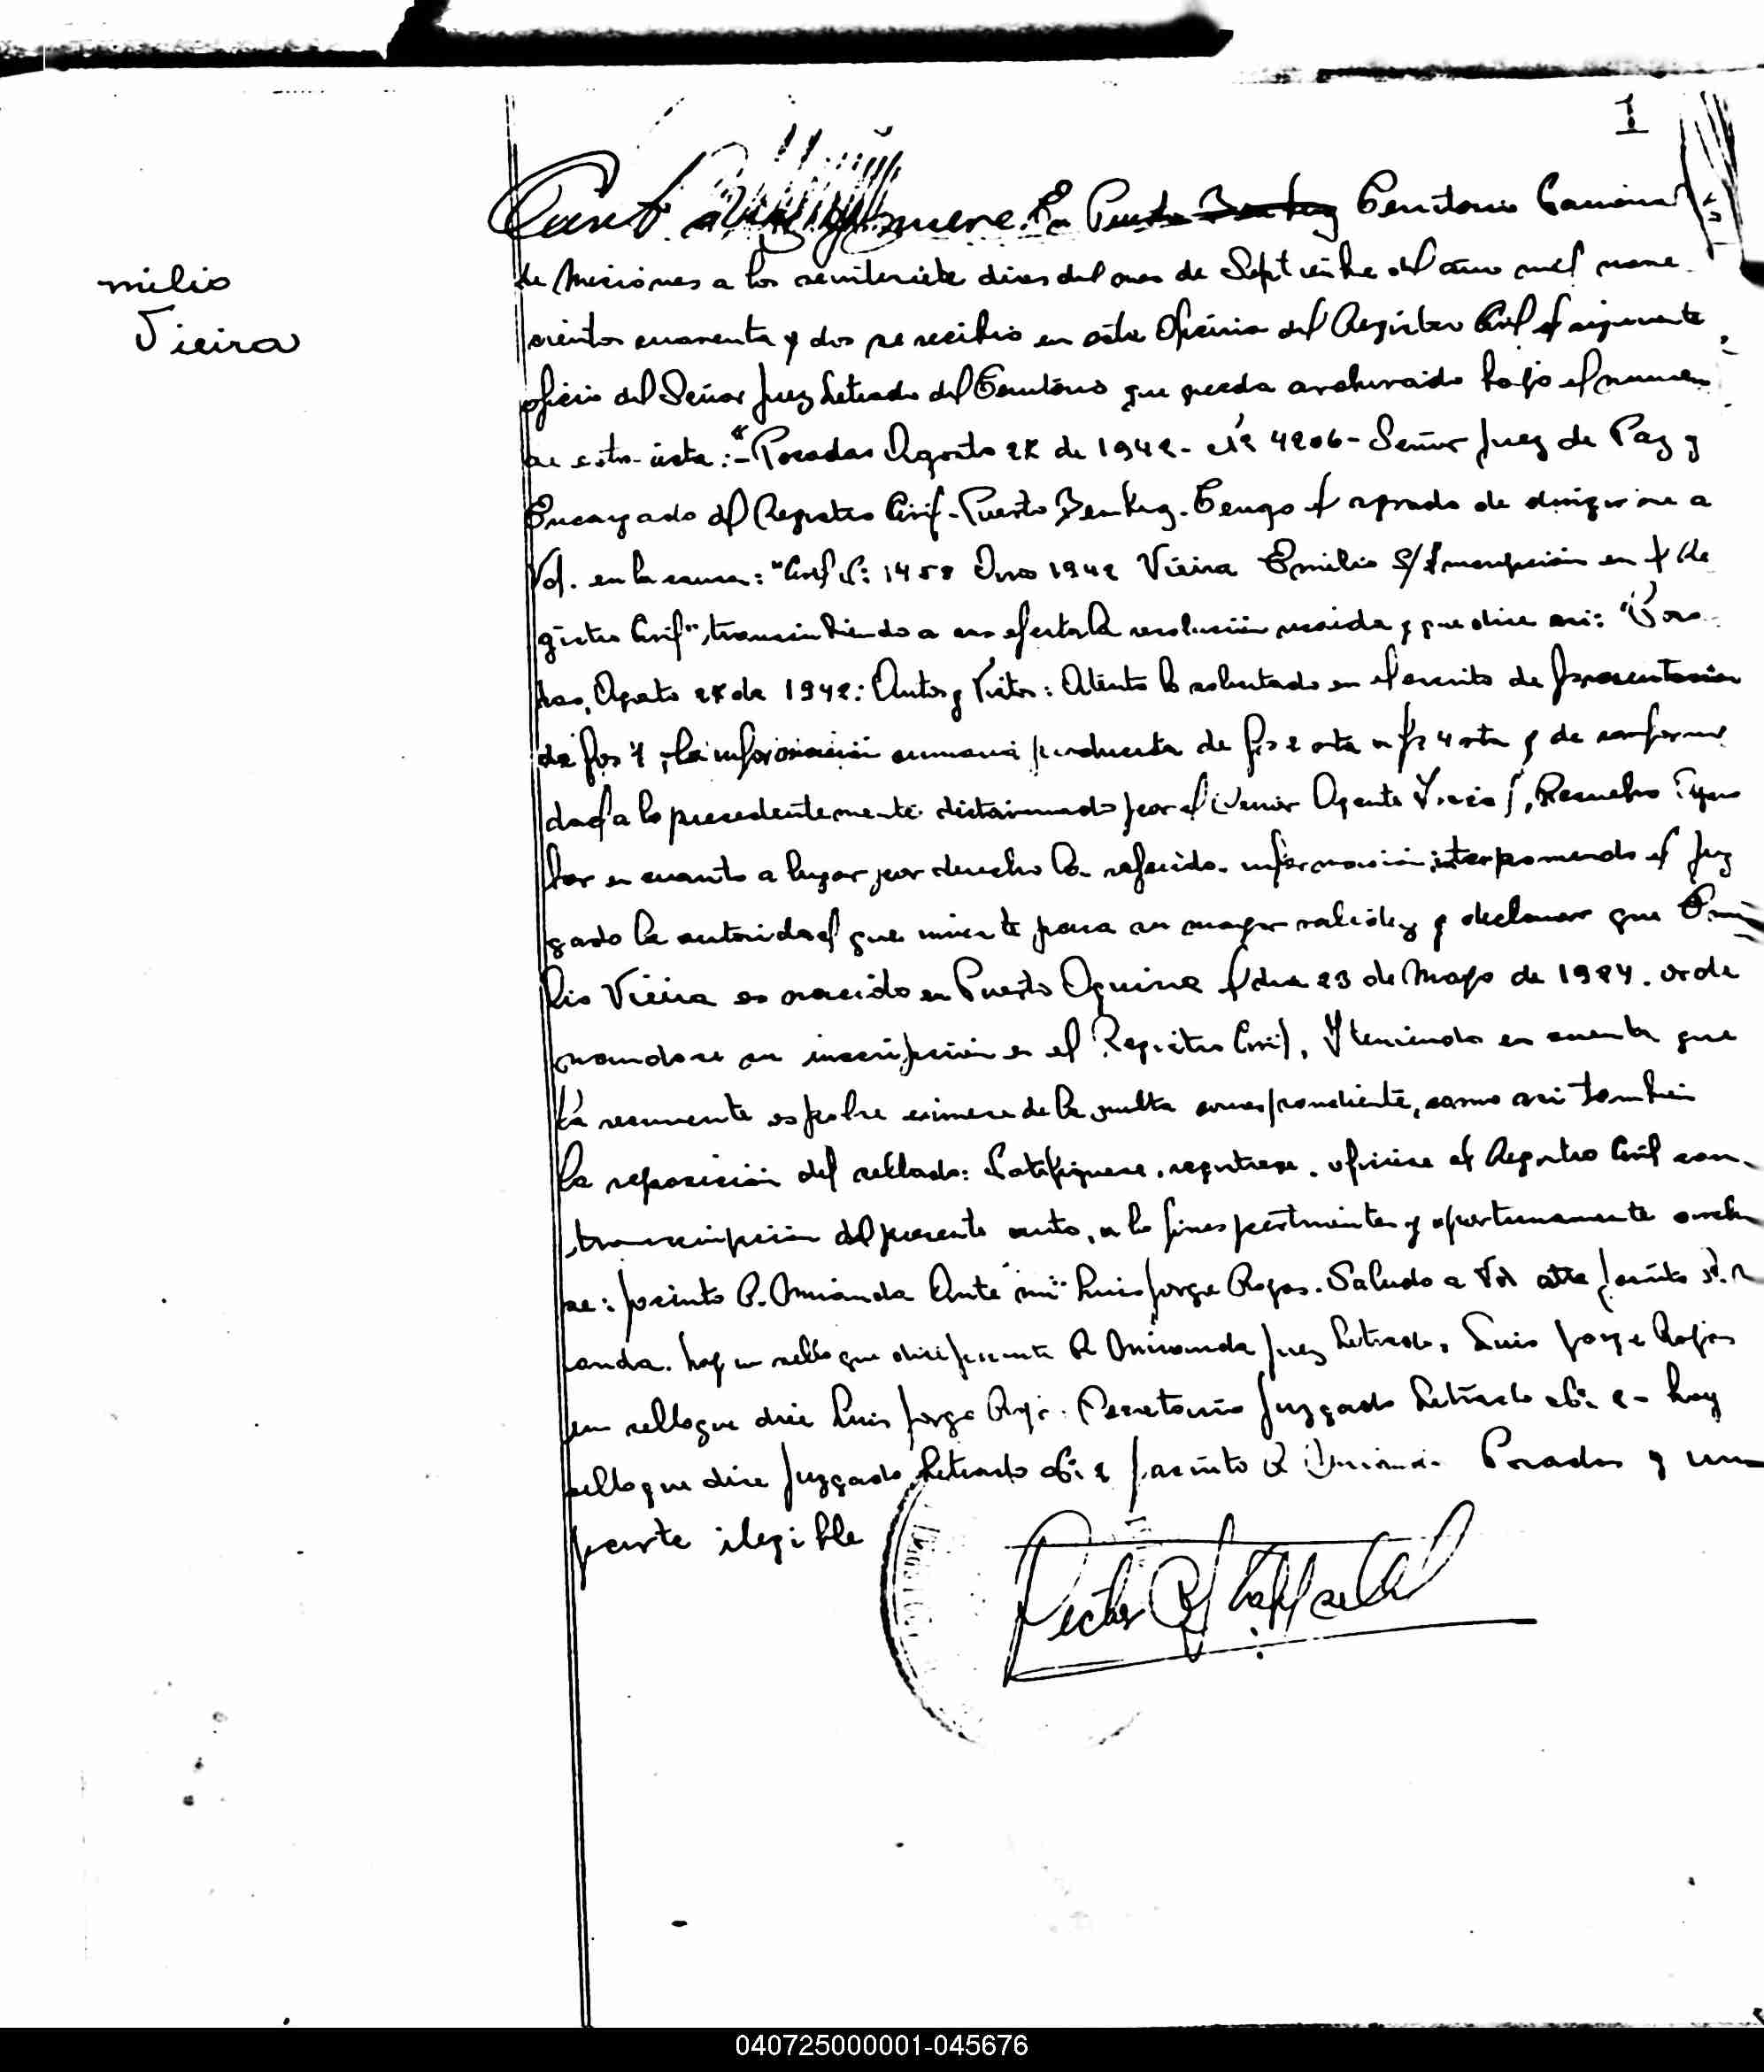 1
milio
Vieira
nueve. En Puerto Bemberg Territorio Nacional
de Misiones a los veintisiete dias del mes de Septiembre del año mil nove
cientos cuarenta y dos se recibio en esta Oficina del Registro Civil el siguiente
oficio del Señor Juez Letrado del Territorio que queda archivado bajo el numero
de esta acta:- "Posadas Agosto 2 de 1942- Nº 4206- Señor Juez de Paz y
Encargado del Registro Civil- Puerto Bemberg. Tengo el agrado de dirigirme a
Vd. en la causa: "Civil 1458 Año 1942 Vieira Emilio S/ Inscripción en el Re
gistro Civil", transcribiendo a sus efectos la resolución recaida y que dice asi: "Posa
das, Agosto de 1942: Autos y Vistos: Atento lo solicitado en el escrito de presentacion
de fos 1, la información sumaria producida de fs 2 vta a fs 4 vta y de conformi
dad a lo precedentemente dictaminado por el Señor Agente Fiscal, Resuelvo Apro
bar en cuanto a lugar por derecho la referida informacion, interponiendo el Juz
gado la autoridad que inviste para su mayor validez y declarar que Emi
lio Vieira es nacido en Puerto Aguirre el dia 23 de Mayo de 1924. orde
nandose su inscripción en el Registro Civil. Y teniendo en cuenta que
la recurrente es pobre eximese de la multa correspondiente, como asi tambien
la reposicion del sellado: Notifiquese, registrese, oficiese al Registro Civil con
transcripcion del presente auto, a los fines pertinentes y oportunamente archi
se: Jacinto R. Miranda Ante mi: Luis Jorge Rojas. Saludo a Vd atte Jacinto R.
anda. hay un sello que dice Jacinto R Miranda Juez Letrado, Luis Jorge Rojas
un sello que dice Luis Jorge Rojas Secretario Juzgado Letrado - hay
sello que dice Juzgado Letrado Jacinto R Posadas y una
parte ilegible